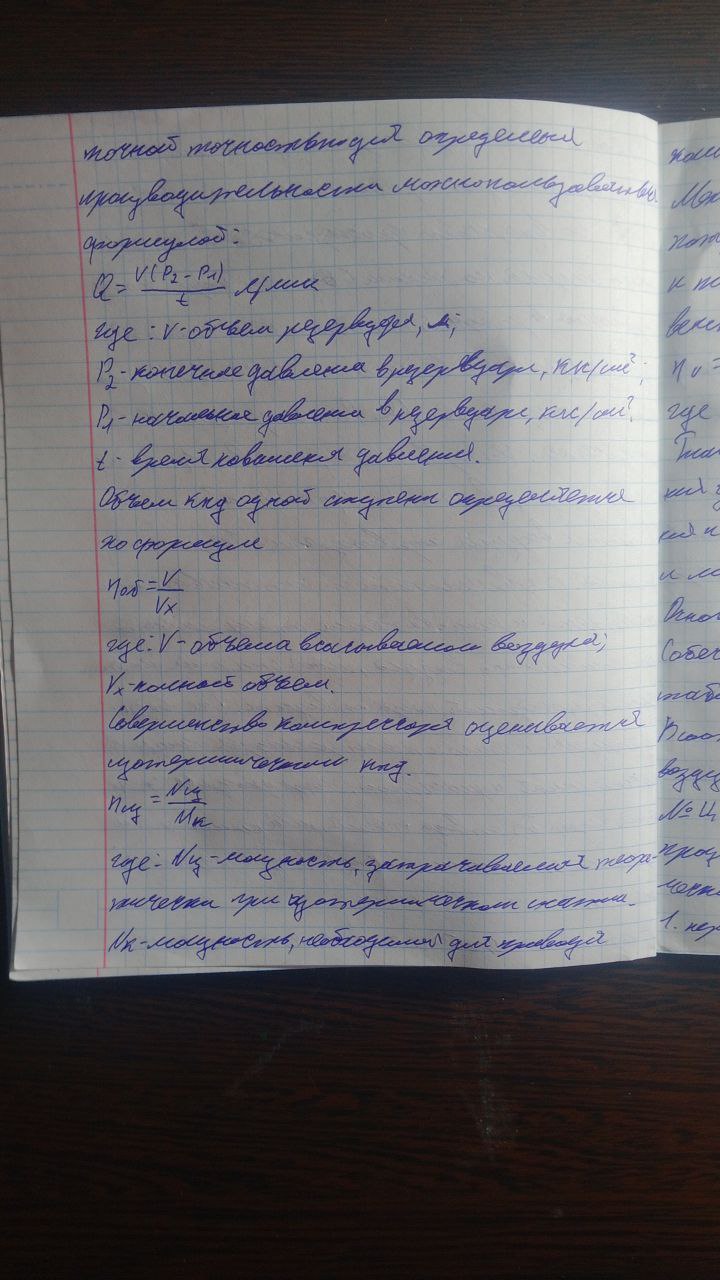 точной точностью для определения
производительности можно пользоваться
формулой:
Q = V(P₂ - P₁) / t л/мин
где: V - объём резервуара, л;
P₂ - конечное давление в резервуаре, кгс/см²;
P₁ - начальное давление в резервуаре, кгс/см².
t - время повышения давления.
Объем кпд одной ступени определяется
по формуле
ηоб = V / Vx
где: V - объёма всасываемого воздуха;
Vx - полной объем.
Совершенство компрессора оценивается
изотермическим кпд.
ηиз = Nиз / Nк
где: Nиз - мощность, затрачиваемая теоре-
тически при изотермическом сжатии.
Nк - мощность, необходимой для
где
к
1. пер
№